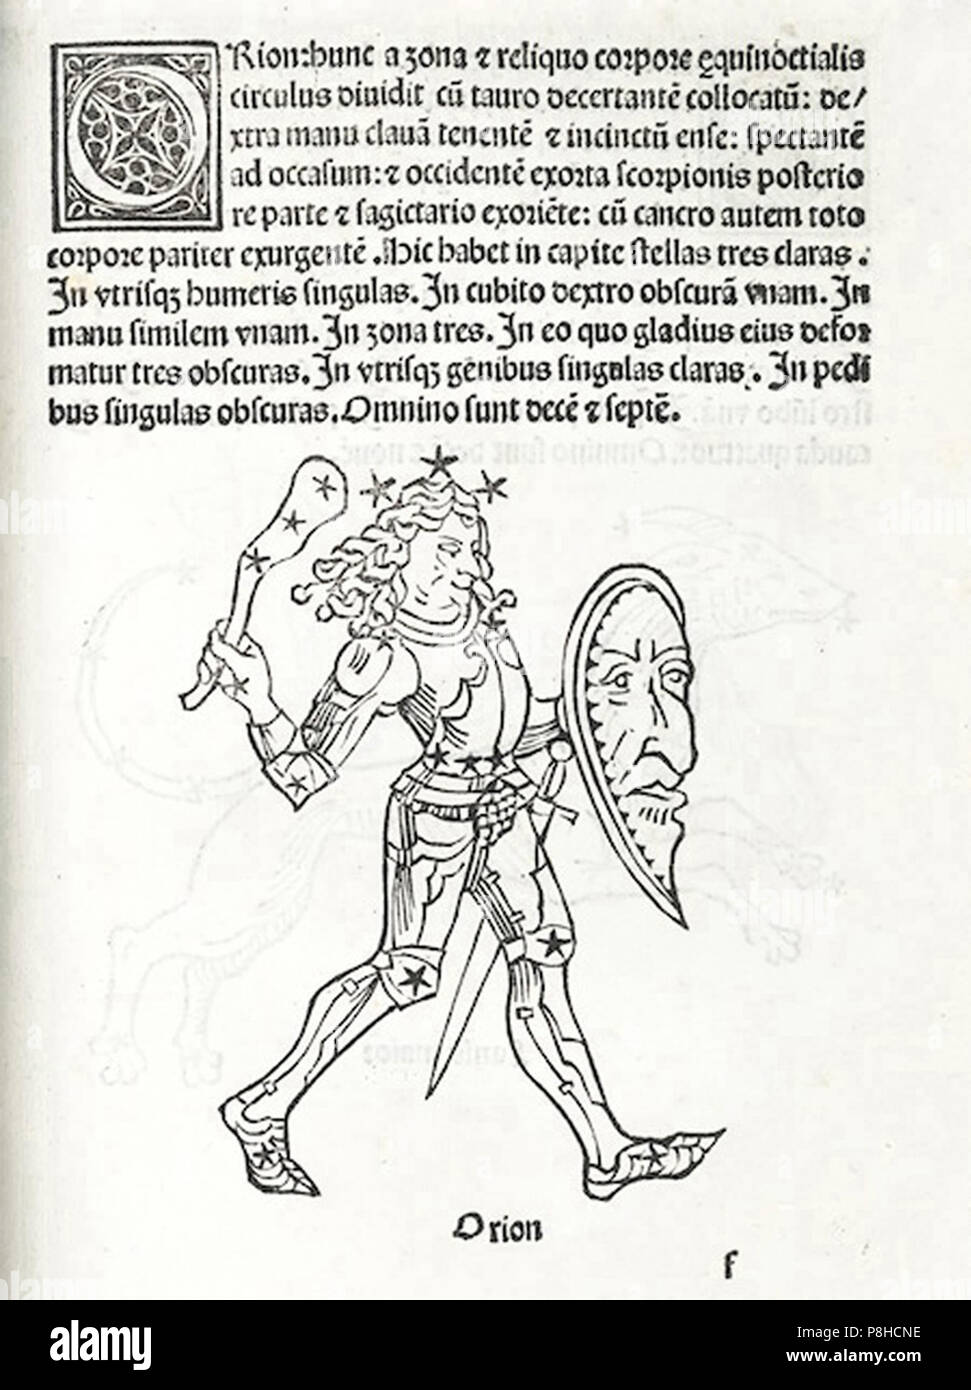 ORion: hunc a zona ⁊ reliquo corpore ęquinoctialis
circulus diuidit cū tauro decertantē collocatū: de/
xtra manu clauā tenentē ⁊ incinctū ense: spectantē
ad occasum: ⁊ occidentē exorta scorpionis posterio
re parte ⁊ sagictario exoriēte: cū cancro autem toto
corpore pariter exurgentē. Hic habet in capite stellas tres claras.
In vtrisqꝫ humeris singulas. In cubito dextro obscurā vnam. In
manu similem vnam. In zona tres. In eo quo gladius eius defor
matur tres obscuras. In vtrisqꝫ genibus singulas claras. In pedi
bus singulas obscuras. Omnino sunt decē ⁊ septē.
Orion
f
alamy
Image ID: P8HCNE
www.alamy.com